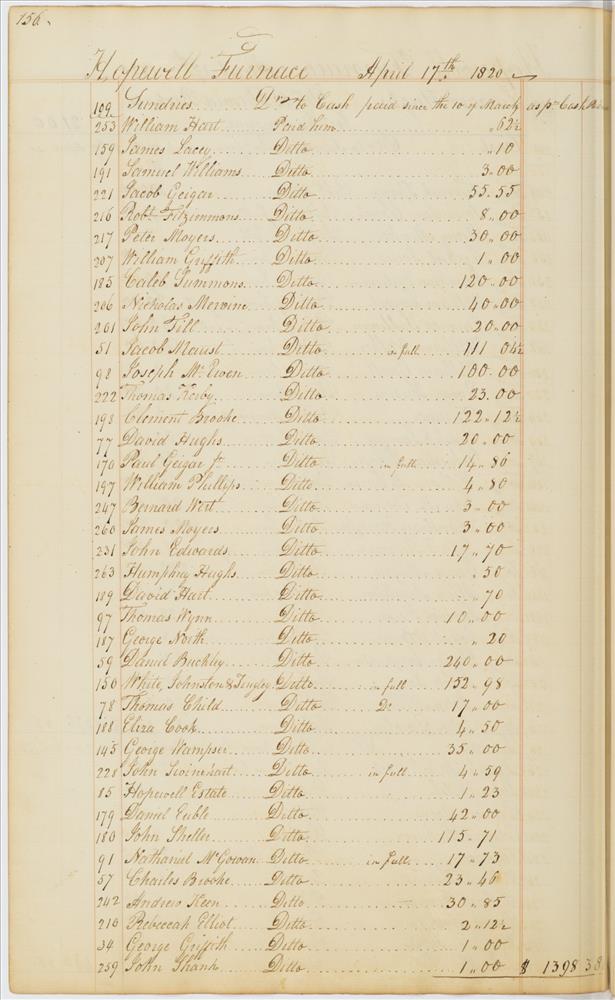 156.
Hopewell Furnace April 17th 1820
109 Sundries Drs to Cash paid since the 10 of March as pr Cash
253 William Hart Paid him „ 62½
159 James Lacey Ditto „ 10
191 Samuel Williams Ditto 3„00
221 Jacob Geigar Ditto 55„55
216 Robt Fitzimmons Ditto 8„00
217 Peter Moyers Ditto 30„00
207 William Griffith Ditto 1„00
185 Caleb Summons Ditto 120„00
206 Nicholas Mervine Ditto 40„00
201 John Till Ditto 20„00
51 Jacob Maust Ditto in full 111 04½
98 Joseph Mc Ewen Ditto 100„00
222 Thomas Kerby Ditto 23„00
193 Clement Brooke Ditto 122„12½
77 David Hughs Ditto 20„00
170 Paul Geigar Jr Ditto in full 14„86
197 William Phillips Ditto 4„80
247 Bernard Wert Ditto 3„00
260 James Moyers Ditto 3„00
231 John Edwards Ditto 17„70
263 Humphry Hughs Ditto „50
189 David Hart Ditto „70
97 Thomas Wynn Ditto 10„00
187 George North Ditto „20
59 Daniel Buckley Ditto 240„00
150 White, Johnston & Tingley Ditto in full 152„98
78 Thomas Child Ditto Do 17„00
188 Eliza Cook Ditto 4„50
145 George Wampser Ditto 35„00
228 John Swinehart Ditto in full 4„59
85 Hopewell Estate Ditto 1„23
179 Daniel Euble Ditto 42„00
180 John Sheller Ditto 115„71
91 Nathaniel McGowan Ditto in full 17„73
57 Charles Brooke Ditto 23„46
242 Andrew Keen Ditto 30„85
210 Rebeccah Elliot Ditto 2„12½
34 George Griffith Ditto 1„00
259 John Shank Ditto 1„00 $ 1398 38